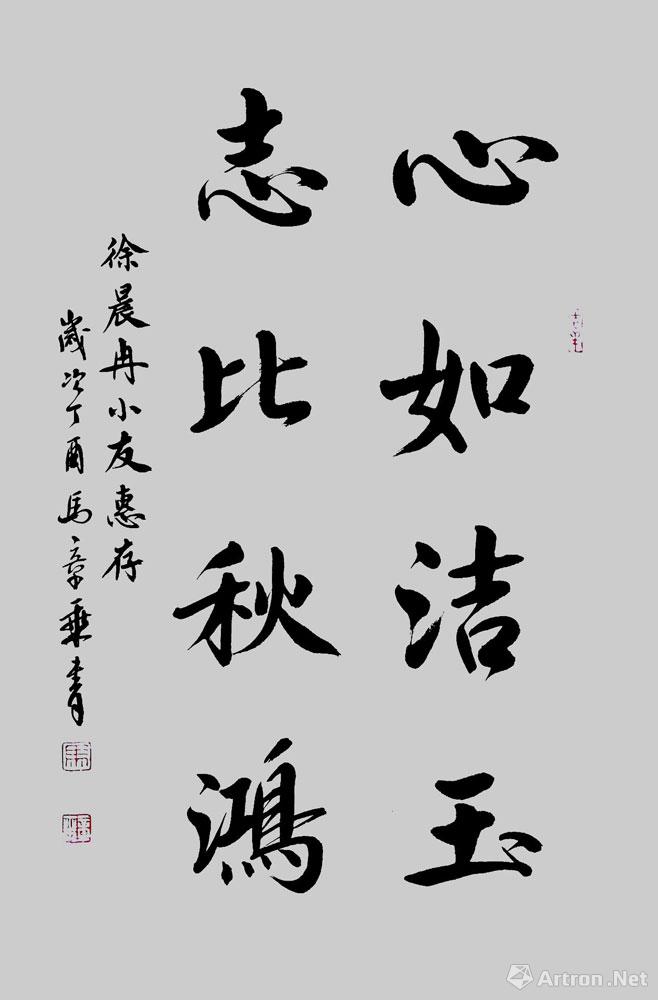 心如洁玉
志比秋鸿
徐晨冉小友惠存
歲次丁酉馬章乘青
Artron.Net